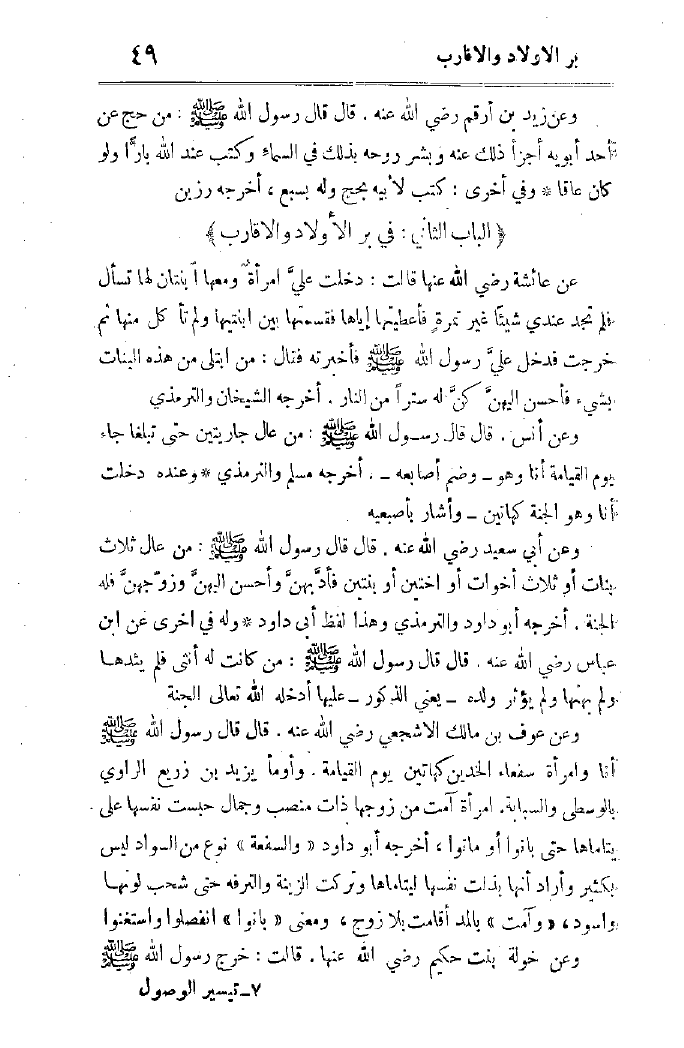 بر الاولاد والاقارب ٤٩
وعن زيد بن أرقم رضي الله عنه . قال قال رسول الله ﷺ : من حج عن
أحد أبويه أجزأ ذلك عنه وبشر روحه بذلك في السماء وكتب عند الله بارًّا ولو
كان عاقا * وفي أخرى : كتب لأبيه بحج وله بسبع ، أخرجه رزين
﴿ الباب الثاني : في بر الأولاد والاقارب ﴾
عن عائشة رضي الله عنها قالت : دخلت عليَّ امرأةٌ ومعها ابنتان لها تسأل
فلم تجد عندي شيئًا غير تمرةٍ فأعطيتها إياها فقسمتها بين ابنتيها ولم تأ كل منها ثم
خرجت فدخل عليَّ رسول الله ﷺ فأخبرته فقال : من ابتلى من هذه البنات
بشيء فأحسن اليهنَّ كنَّ له ستراً من النار . أخرجه الشيخان والترمذي
وعن أنس . قال قال رسول الله ﷺ : من عال جاريتين حتى تبلغا جاء
يوم القيامة أنا وهو ــ وضم أصابعه ــ . أخرجه مسلم والترمذي * وعنده دخلت
أنا وهو الجنة كهاتين ــ وأشار بأصبعيه
وعن أبي سعيد رضي الله عنه . قال قال رسول الله ﷺ : من عال ثلاث
بنات أو ثلاث أخوات أو اختين أو بنتين فأدَّبهنَّ وأحسن اليهنَّ وزوّجهنَّ فله
الجنة . أخرجه أبو داود والترمذي وهذا لفظ أبى داود * وله في اخرى عن ابن
عباس رضي الله عنه . قال قال رسول الله ﷺ : من كانت له أنثى فلم يئدها
ولم يهنها ولم يؤثر ولده ــ يعني الذكور ــ عليها أدخله الله تعالى الجنة
وعن عوف بن مالك الاشجعي رضي الله عنه . قال قال رسول الله ﷺ
أنا وامرأة سفعاء الخدين كهاتين يوم القيامة . وأومأ يزيد بن زريع الراوي
بالوسطى والسبابة . امرأة آمت من زوجها ذات منصب وجمال حبست نفسها على
يتاماها حتى بانوا أو ماتوا ، أخرجه أبو داود « والسفعة » نوع من السواد ليس
بكثير وأراد أنها بذلت نفسها ليتاماها وتركت الزينة والترفه حتى شحب لونها
واسود ، « وآمت » بالمد أقامت بلا زوج ، ومعنى « بانوا » انفصلوا واستغنوا
وعن خولة بنت حكيم رضي الله عنها . قالت : خرج رسول الله ﷺ
٧ ــ تيسير الوصول